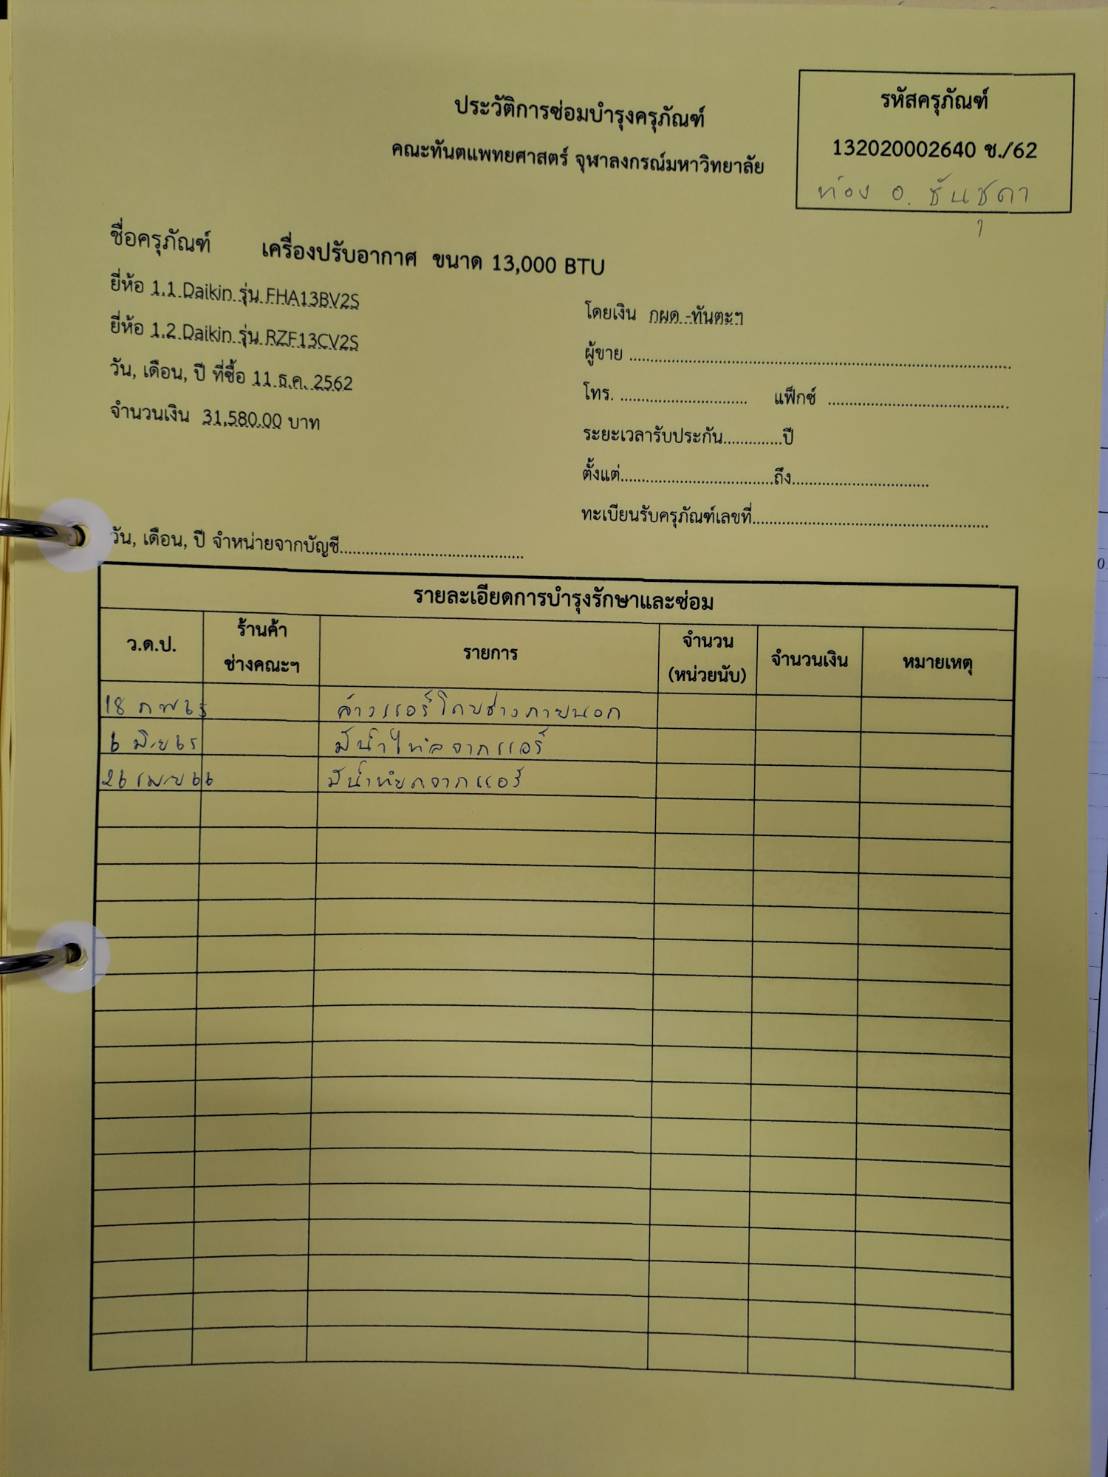 รหัสครุภัณฑ์
132020002640 ช./62
ห้อง อ. ชันชุดา
ประวัติการซ่อมบำรุงครุภัณฑ์
คณะทันตแพทยศาสตร์ จุฬาลงกรณ์มหาวิทยาลัย
ชื่อครุภัณฑ์ เครื่องปรับอากาศ ขนาด 13,000 BTU
ยี่ห้อ 1.1 Daikin รุ่น FHA13BV2S
ยี่ห้อ 1.2 Daikin รุ่น RZF13CV2S
วัน, เดือน, ปี ที่ซื้อ 11 ธ.ค. 2562
จำนวนเงิน 31,580.00 บาท
โดยเงิน กผด.-ทันตะฯ
ผู้ขาย
โทร. แฟ็กซ์
ระยะเวลารับประกัน.............ปี
ตั้งแต่..................................ถึง..............................
ทะเบียนรับครุภัณฑ์เลขที่
วัน, เดือน, ปี จำหน่ายจากบัญชี
รายละเอียดการบำรุงรักษาและซ่อม
ว.ด.ป. ร้านค้า ช่างคณะฯ รายการ จำนวน (หน่วยนับ) จำนวนเงิน หมายเหตุ
18 กพ 65 ล้างแอร์โดยช่างภายนอก
6 มิ.ย 65 มีน้ำไหลจากแอร์
26 เม.ย 66 มีน้ำหยดจากแอร์